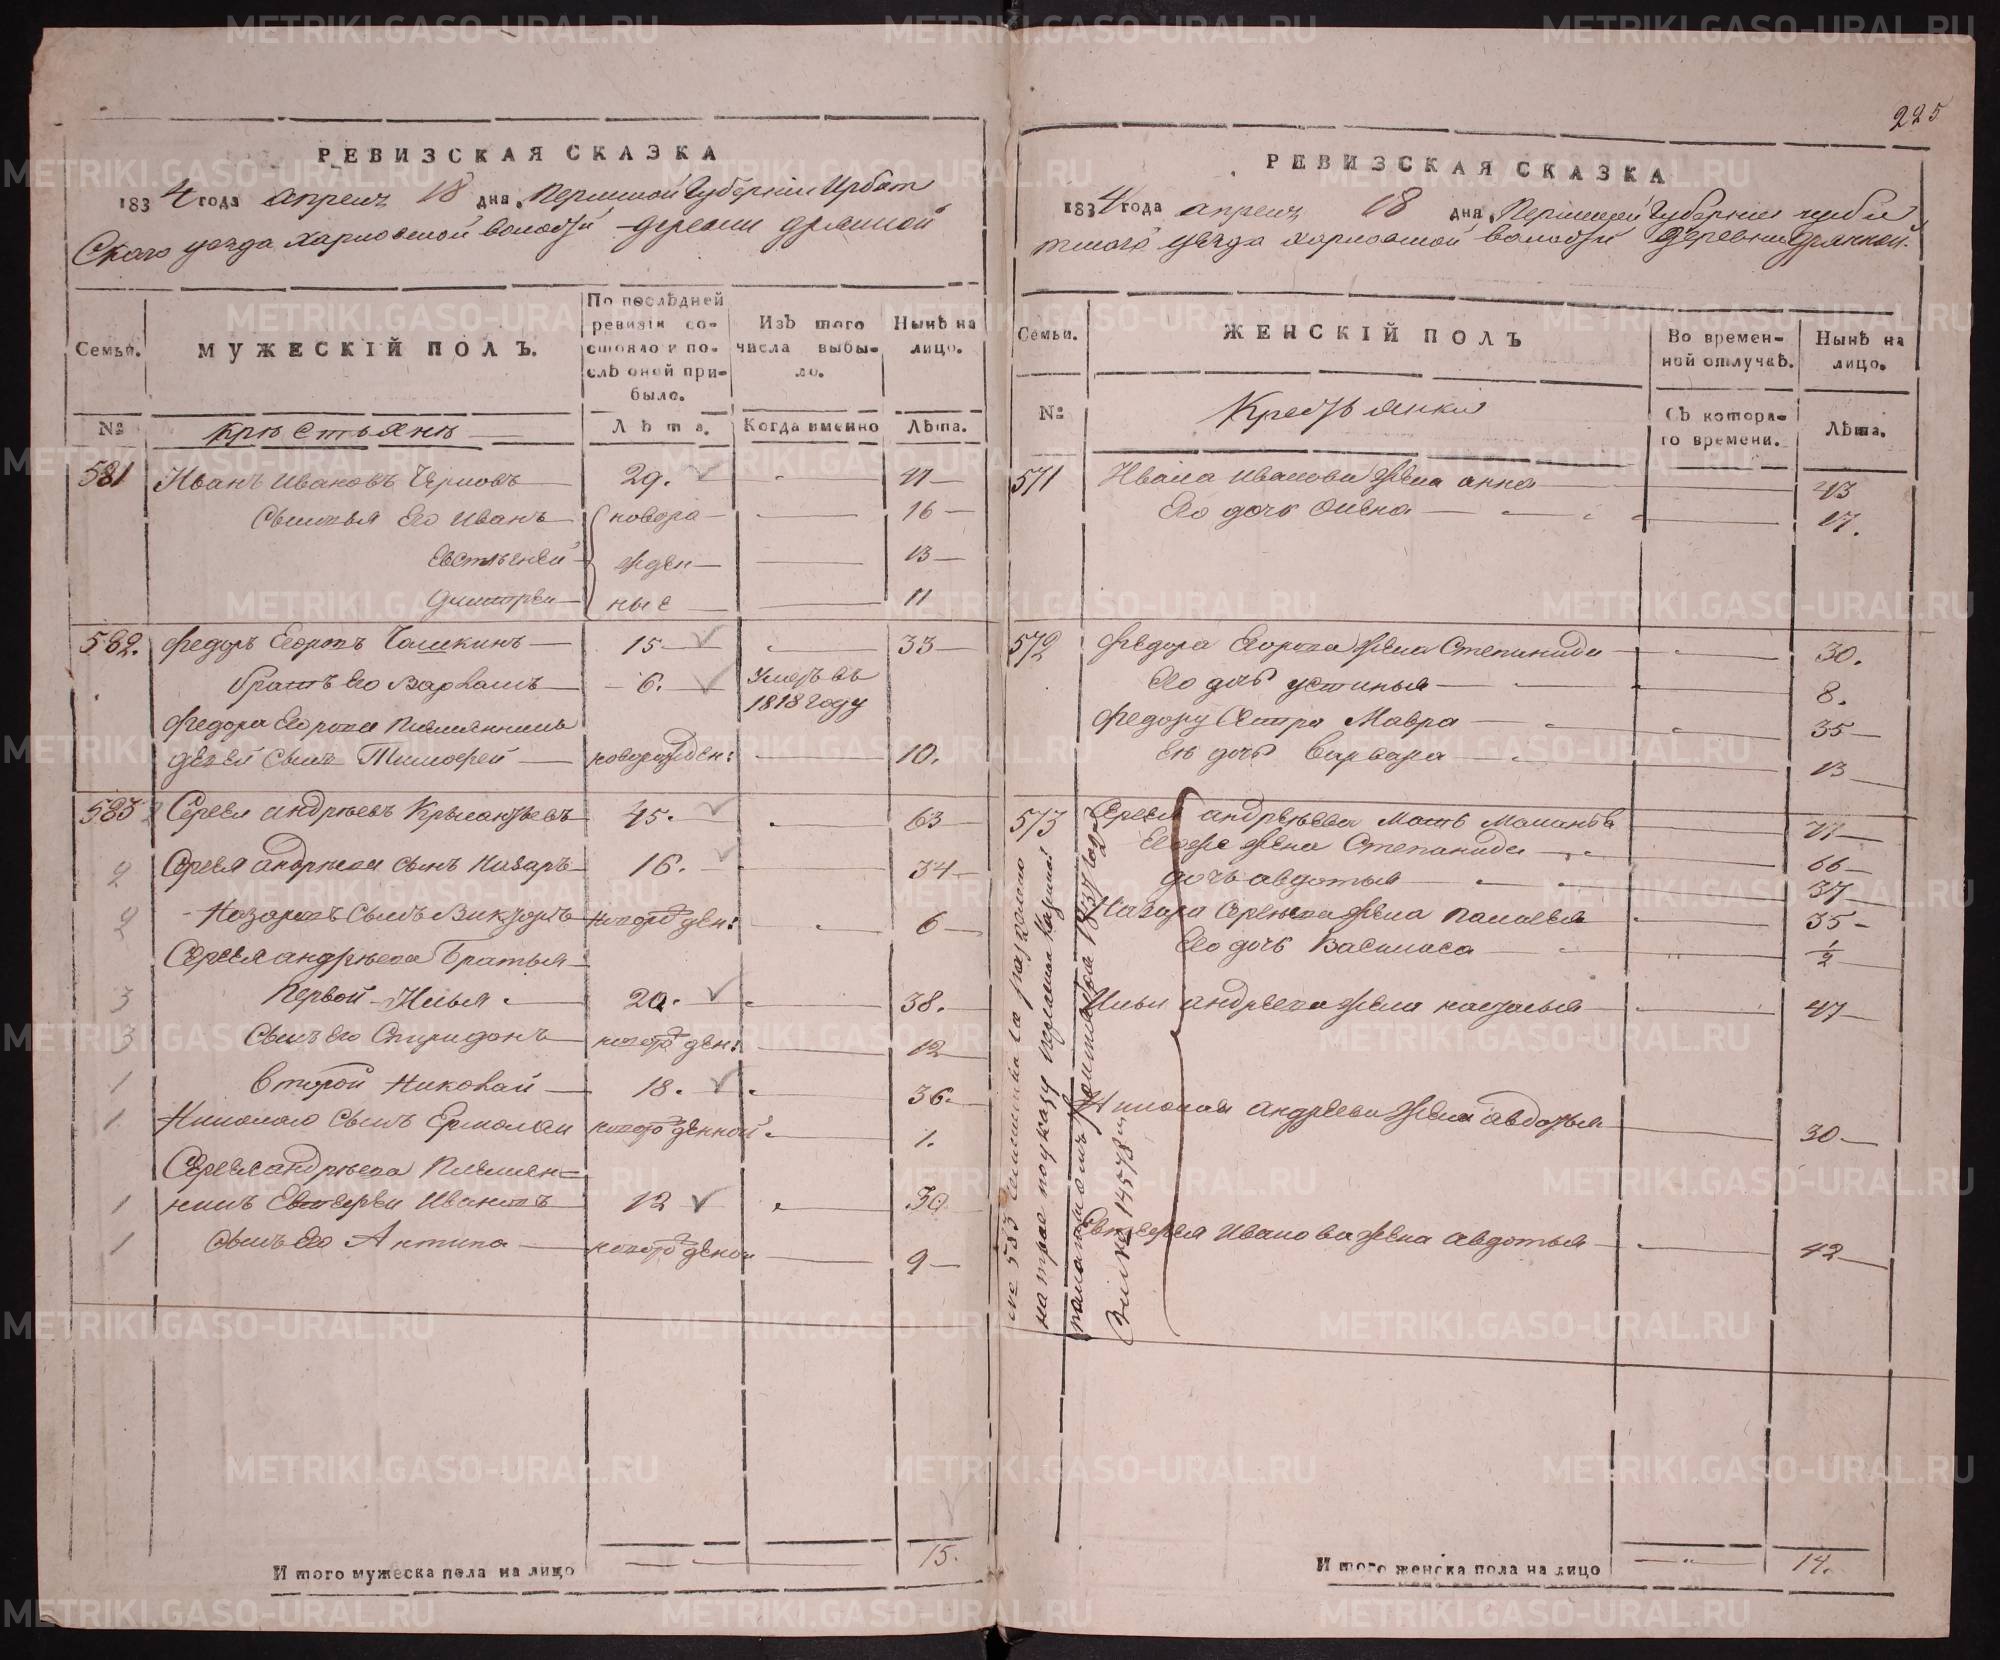 225
РЕВИЗСКАЯ СКАЗКА
1834 года апреля 18 дня, Пермской Губернии Ирбит
Скаго уезда харловской волости деревни дрянной
Семьи.
МУЖЕСКІЙ ПОЛЪ.
По послѣдней ревизіи состояло и послѣ оной прибыло.
Изъ того числа выбыло.
Нынѣ на лицо.
№
крѣстьянѣ
Лѣта.
Когда именно
Лѣта.
581 Иванъ Ивановъ Черновъ 29.
Сыновья Его Иванъ новоро 16
Евстигней жден 13
Дмитрей ные 11
582. Федоръ Егоровъ 15. 33
братъ его Варламъ 6. Умеръ въ 1818 году
Федора Егорова племянницы
девки сынъ Тимофей новорожден: 10.
583 Сергей андрѣевъ 45. 63
2 Сергея андрѣева сынъ Назаръ 16. 34
2 Назаровъ Сынъ Викулъ новорожден: 6
Сергея андрѣева Братья
3 Первой Илья 20. 38.
3 Сынъ его Спиридонъ новорожден: 12
1 Второй Николай 18. 36.
1 Николаю сынъ Ермолай новорожденной 1.
Сергея андрѣева Племян=
1 никъ Евстефей Ивановъ 12 30
1 Сынъ Его Антипа новорожденой 9
И того мужеска пола на лицо 15.
РЕВИЗСКАЯ СКАЗКА
1834 года апреля 18 дня, Пермской Губернии ирби
тскаго уезда харловской волости деревни дрянной.
Семьи.
ЖЕНСКІЙ ПОЛЪ
Во временной отлучкѣ.
Нынѣ на лицо.
№
Крестьянки
Съ котораго времени.
Лѣта.
571 Ивана Иванова Жена анна 43
Его дочь 17.
572 Федора Егорова Жена Степанида 30.
Его дочь устинья 8.
Федору Сестра Мавра 35
Ея дочь Варвара 13
573 Сергея андрѣева Мать 77
Егоже Жена Степанида 66
дочь авдотья 37
Назара Сергѣева Жена Палагея 35
Его дочь Василиса 1/2
Ильи андреева Жена наталья 47
Николая андреева Жена авдотья 30
Евстефея Иванова Жена авдотья 42
№ 583
на трое по указу Пермской Казенной
палаты отъ 1837 года
за № 14578
И того женска пола на лицо 14.
METRIKI.GASO-URAL.RU